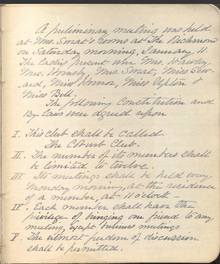 A preliminary meeting was held
at Mrs. Smat's rooms at the Richmon
on Saturday morning, January 11.
The Ladies present were Mrs.
Mrs. Mrs. Smat, Miss
and, Miss Miss and
Miss
The following Constitution and
By Laws were agreed upon
I. This club shall be called
The Club.
II. The number of its members shall
be limited to twelve.
III. Its meetings shall be held every
Monday morning, at the residence
of a member, at 11 o'clock
IV. Each member shall have the
privilege of bringing one friend to any
meeting, except business meetings
V. The utmost freedom of discussion
shall be permitted.